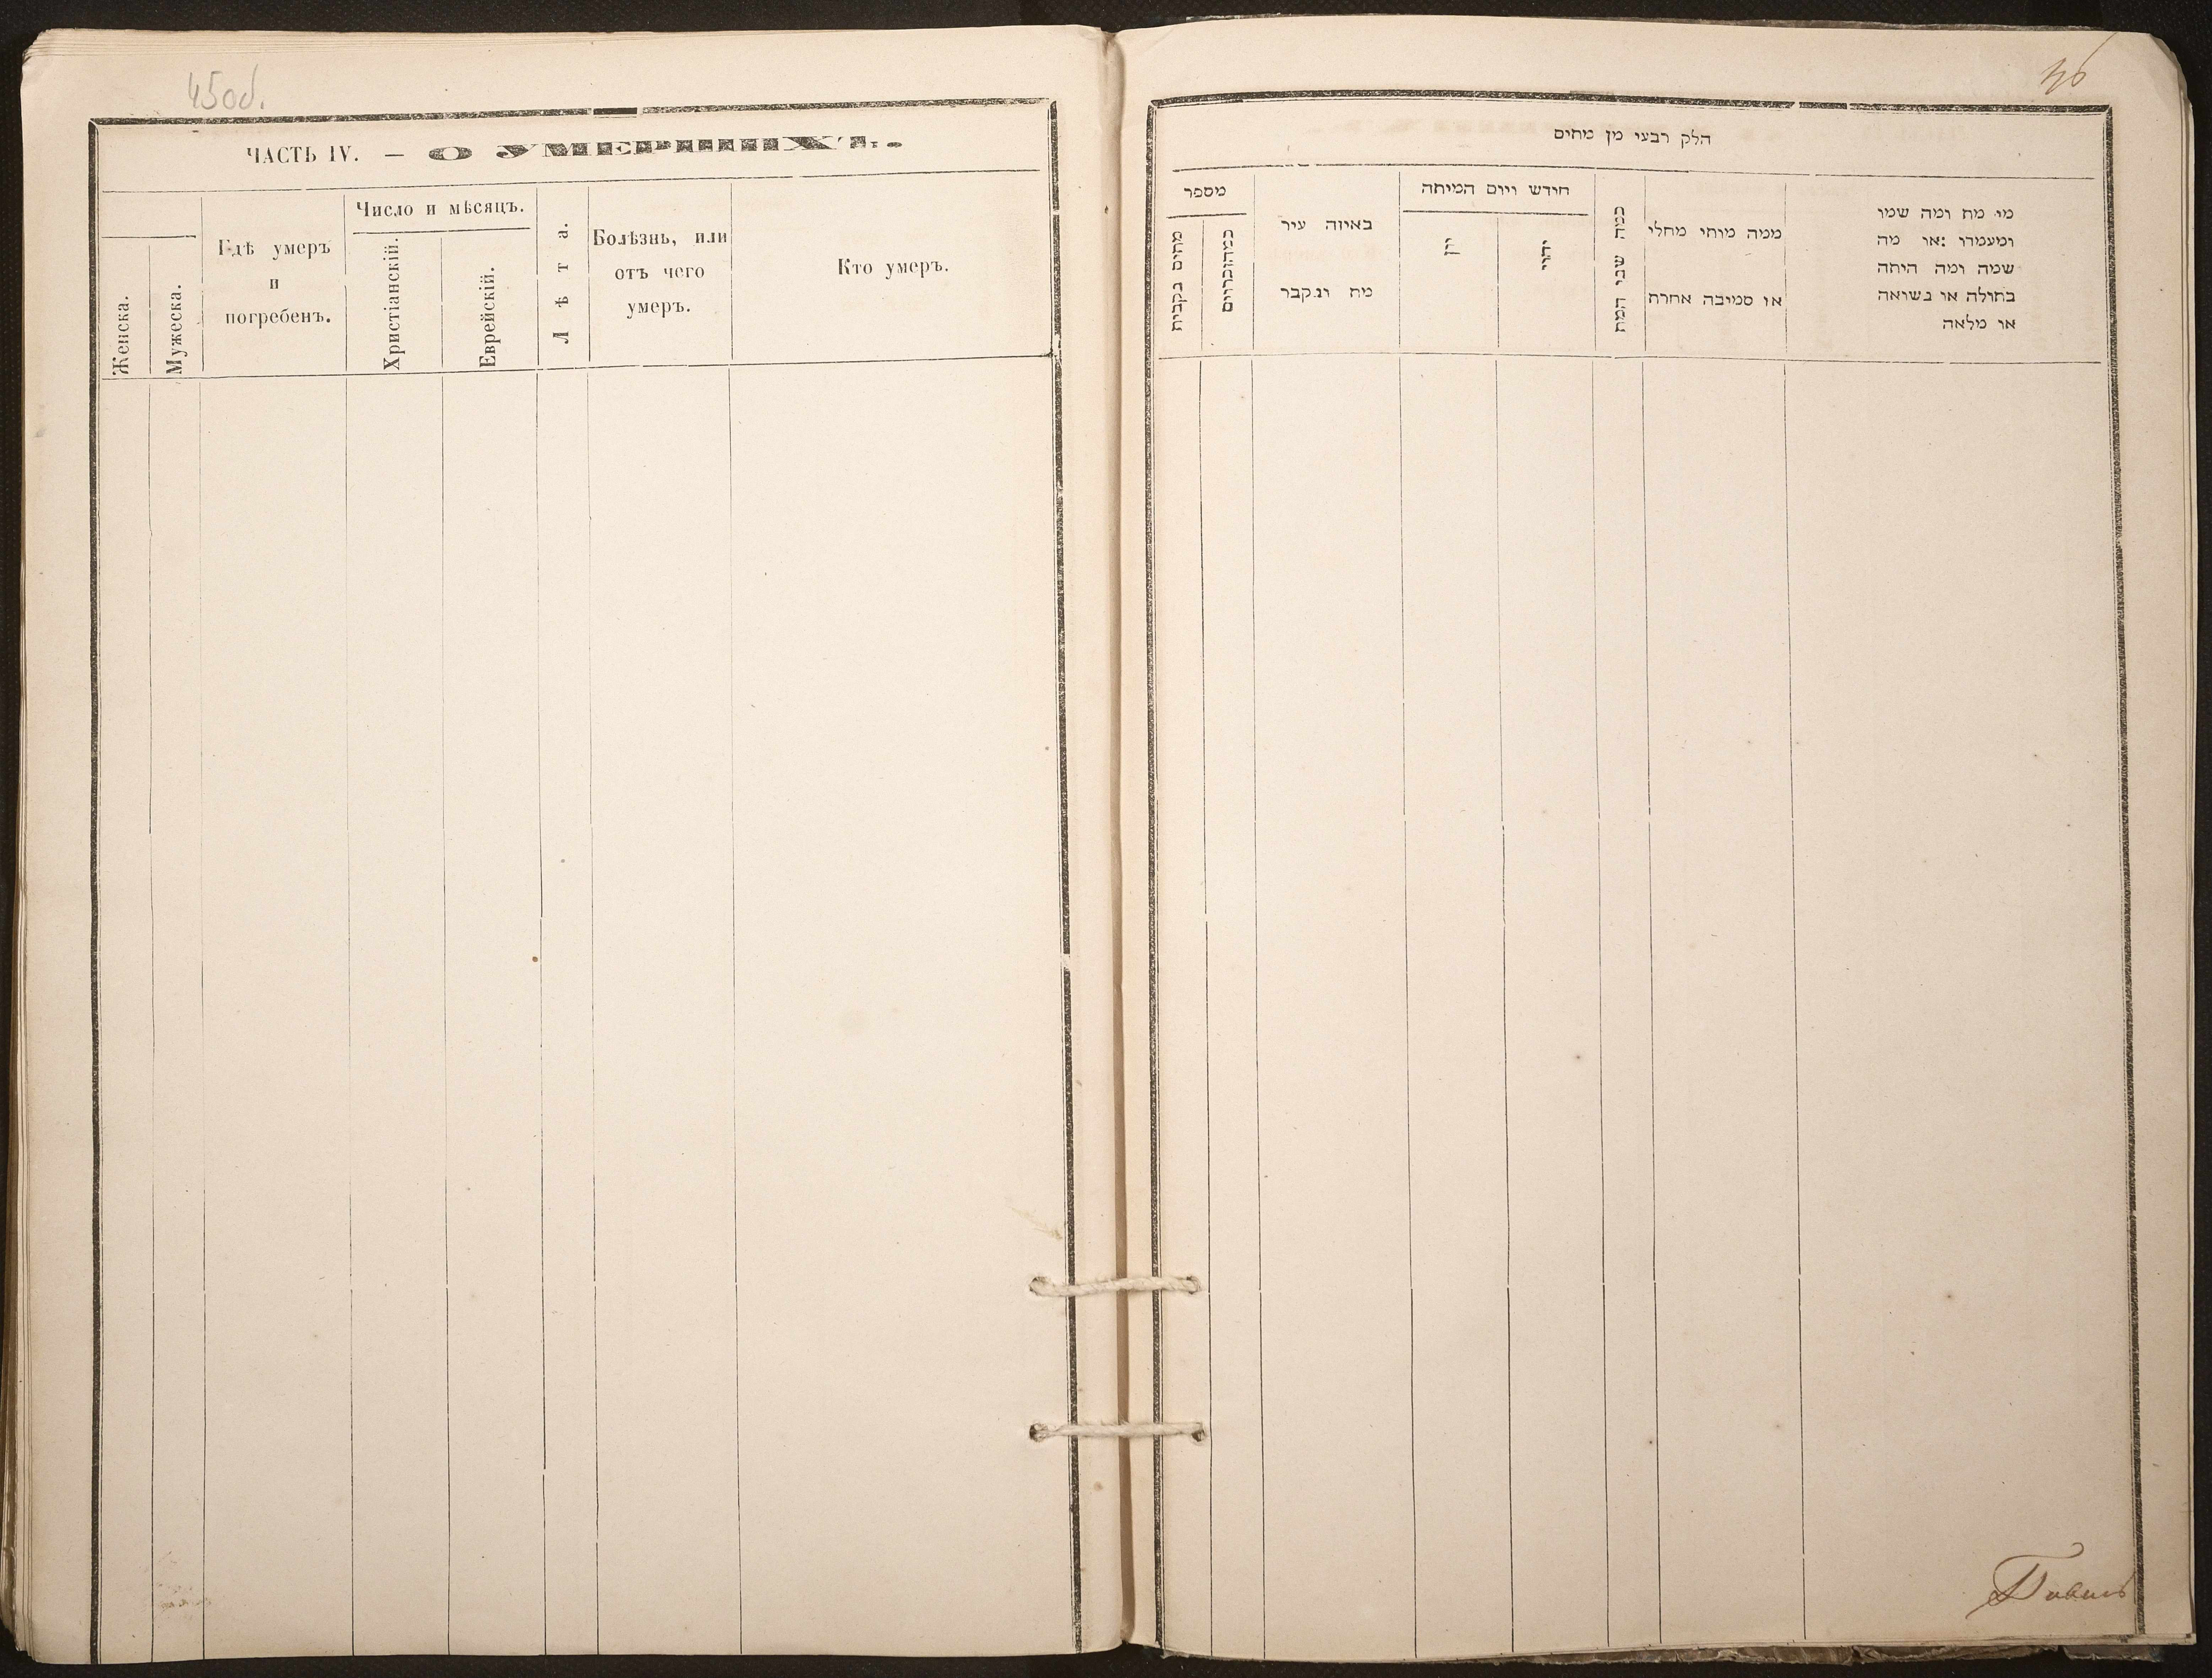 45об.
ЧАСТЬ IV. — О УМЕРШИХЪ.
Женска.
Мужеска.
Гдѣ умеръ
и
погребенъ.
Число и мѣсяцъ.
Христіанскій.
Еврейскій.
Лѣта.
Болѣзнь, или
отъ чего
умеръ.
Кто умеръ.
46
הלק רבעי מן מחים
מספר
מחים נקבית
באיזה עיר
מח וג.קבר
חודש ויום המיחה
יון
יהוי
כמה שני המח
ממה מוחי מחלי
או סמיבה אחרח
מי מח ומה שמו
ומעמדו :או מה
שמה ומה היחה
בחולה או בשואה
או מלאה